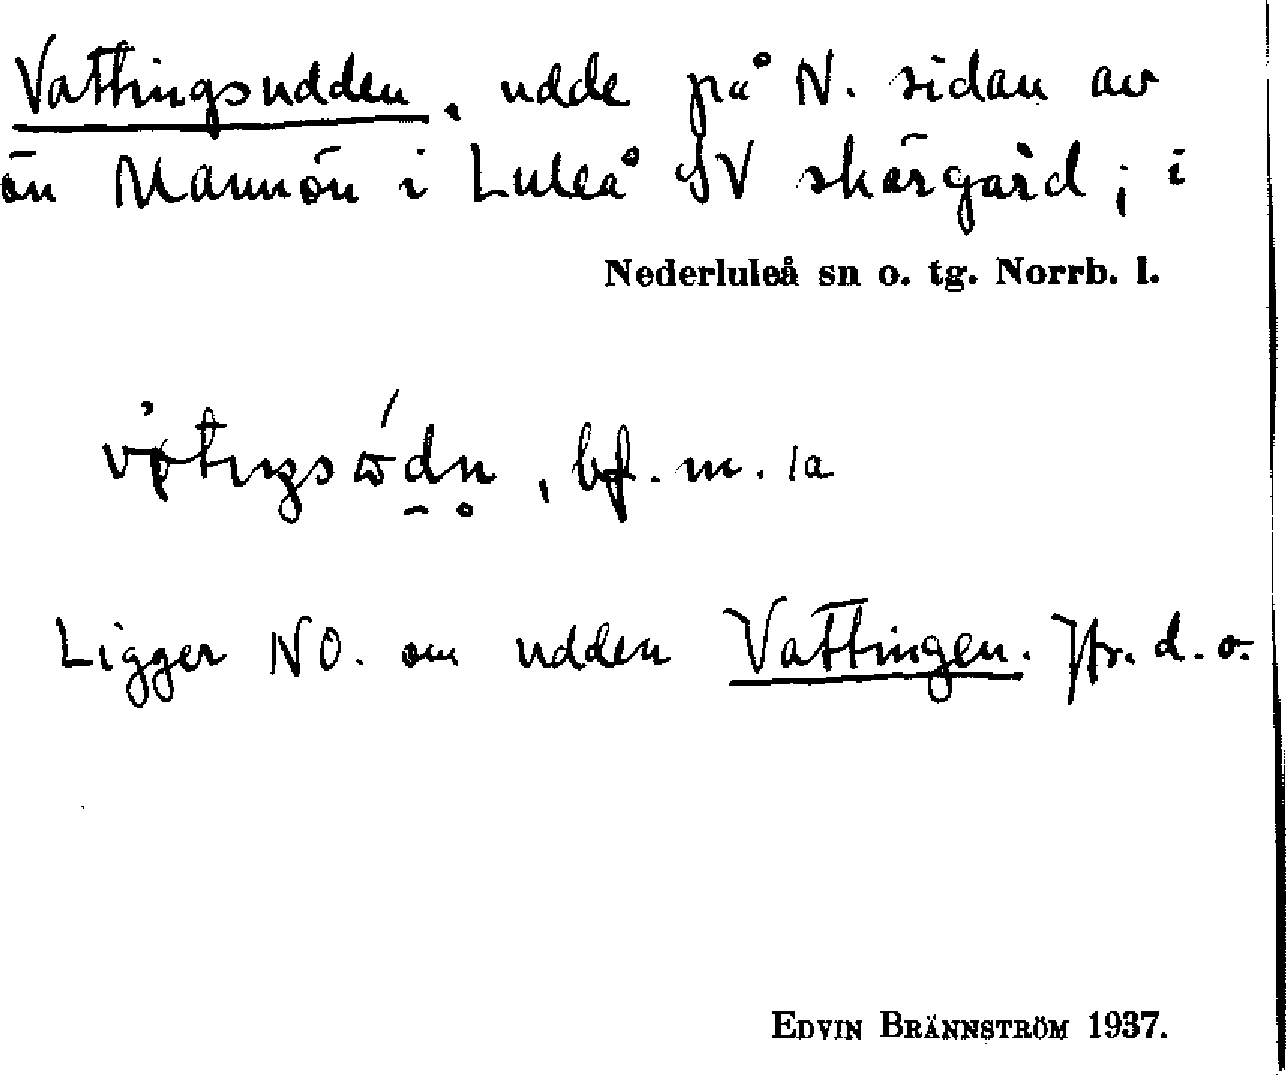 Vattingsudden, udde på N. sidan av
ön Mannön i Luleå SV skärgård; i
Nederluleå sn o. tg. Norrb. l.
, bf. m. 1a
Ligger NO. om udden Vattingen. Jfr. d. o.
EDVIN BRÄNNSTRÖM 1937.